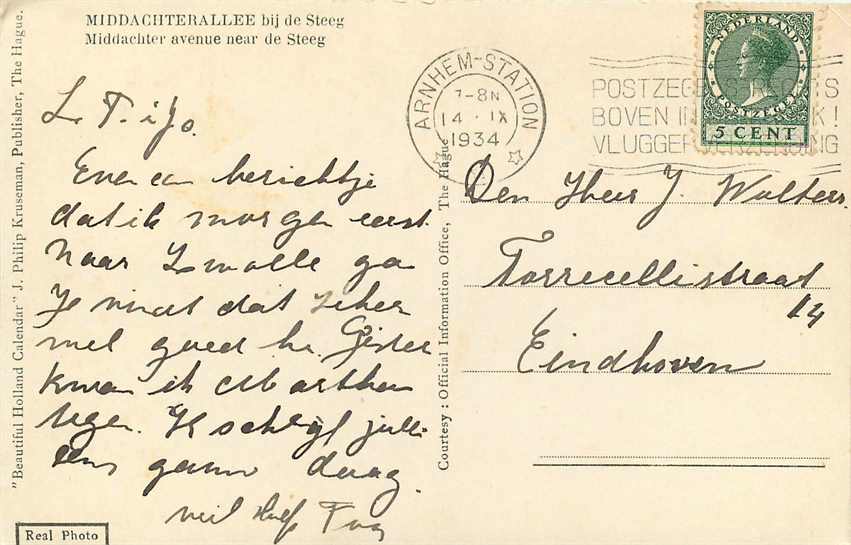 MIDDACHTERALLEE bij de Steeg
Middachter avenue near de Steeg
"Beautiful Holland Calendar" J. Philip Kruseman, Publisher, The Hague.
Courtesy: Official Information Office, The Hague
ARNHEM-STATION
7-8N
14 IX
1934
BOVEN
VLUGGER
NEDERLAND
POSTZEGEL
5 CENT
L. T. i Jo.
Even een berichtje
dat ik morgen eerst
naar Zwolle ga
Je moet dat zeker
wel goed Gister
kwam ik Marthen
tegen. Ik schrijf julli
eens gauw
Den Heer J. Wolters.
Torrecellistraat
14
Eindhoven
Real Photo